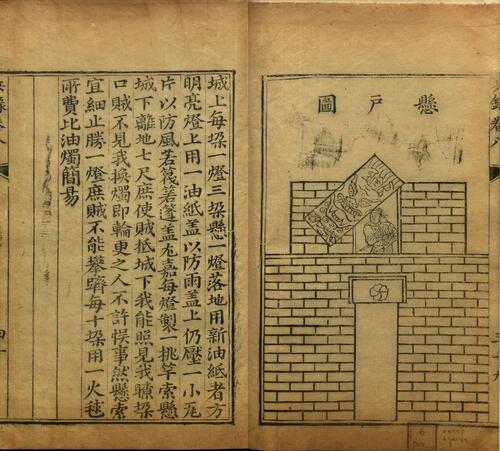 懸戶圖
城上每垜一燈三垜懸一燈落地用新油紙者方
明亮燈上用一油紙盖以防雨盖上仍壓一小瓦
片以防風若篾箬篷盖尤嘉每燈製一挑竿索懸
城下離地七尺庶使賊抵城下我能照見我瞭垜
口賊不見我換燭即輪更之人不許悞事然懸索
宜細止勝一燈庶賊不能攀躋每十垜用一火毬
所費比油燭簡易